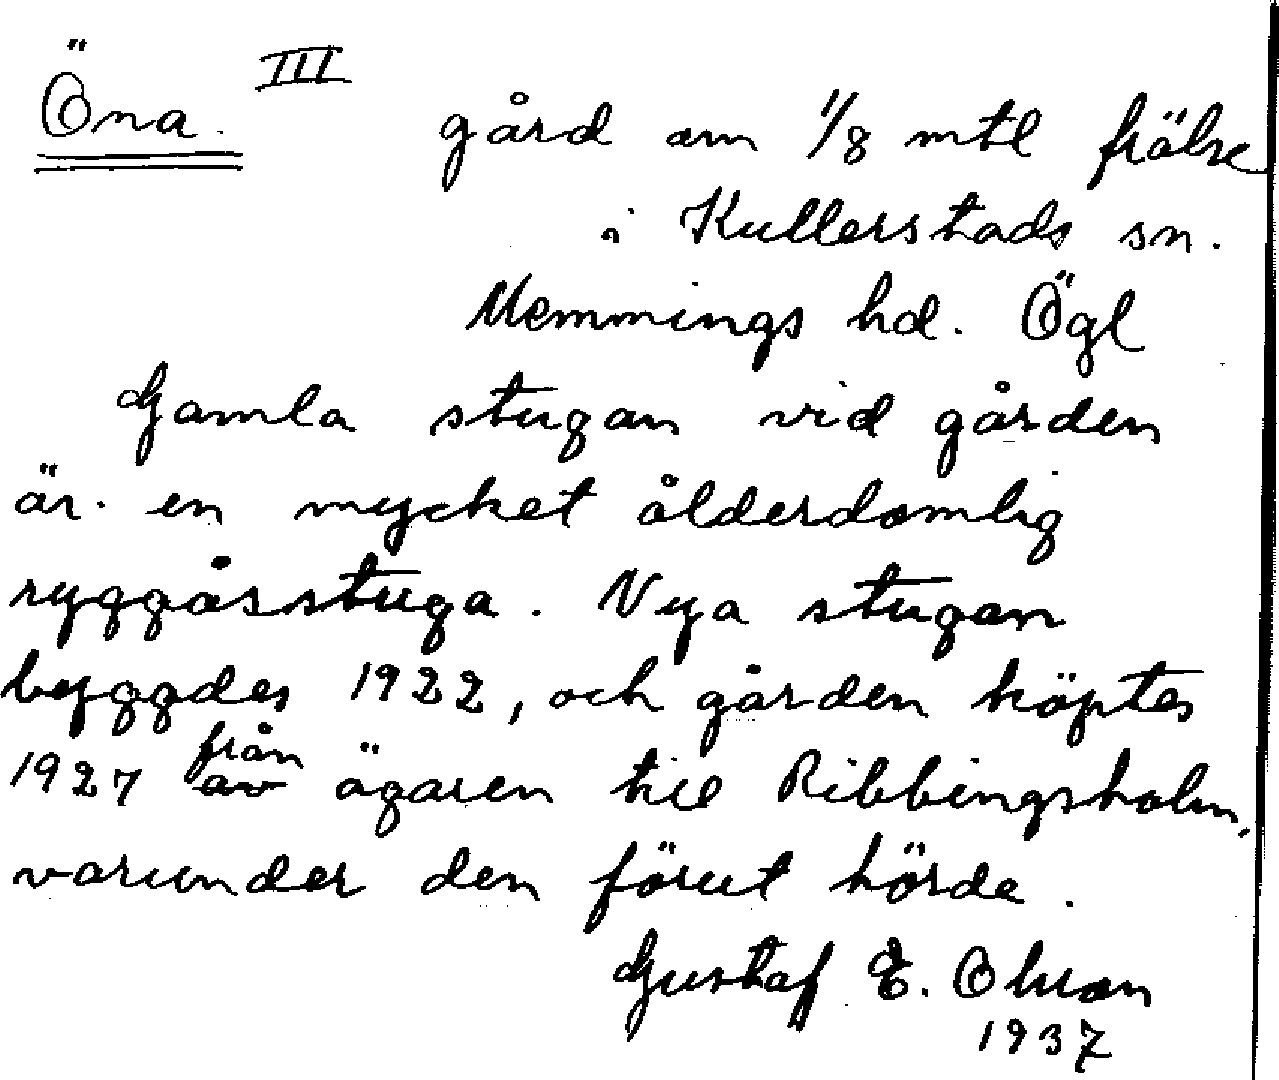 Öna. III
gård om 1/8 mtl frälse
i Kullerstads sn.
Memmings hd. Ögl
Gamla stugan vid gården
är en mycket ålderdomlig
ryggåsstuga. Nya stugan
byggdes 1922, och gården köptes
från
1927 av ägaren till Ribbingsholm,
varunder den förut hörde.
Gustaf E. Olson
1937